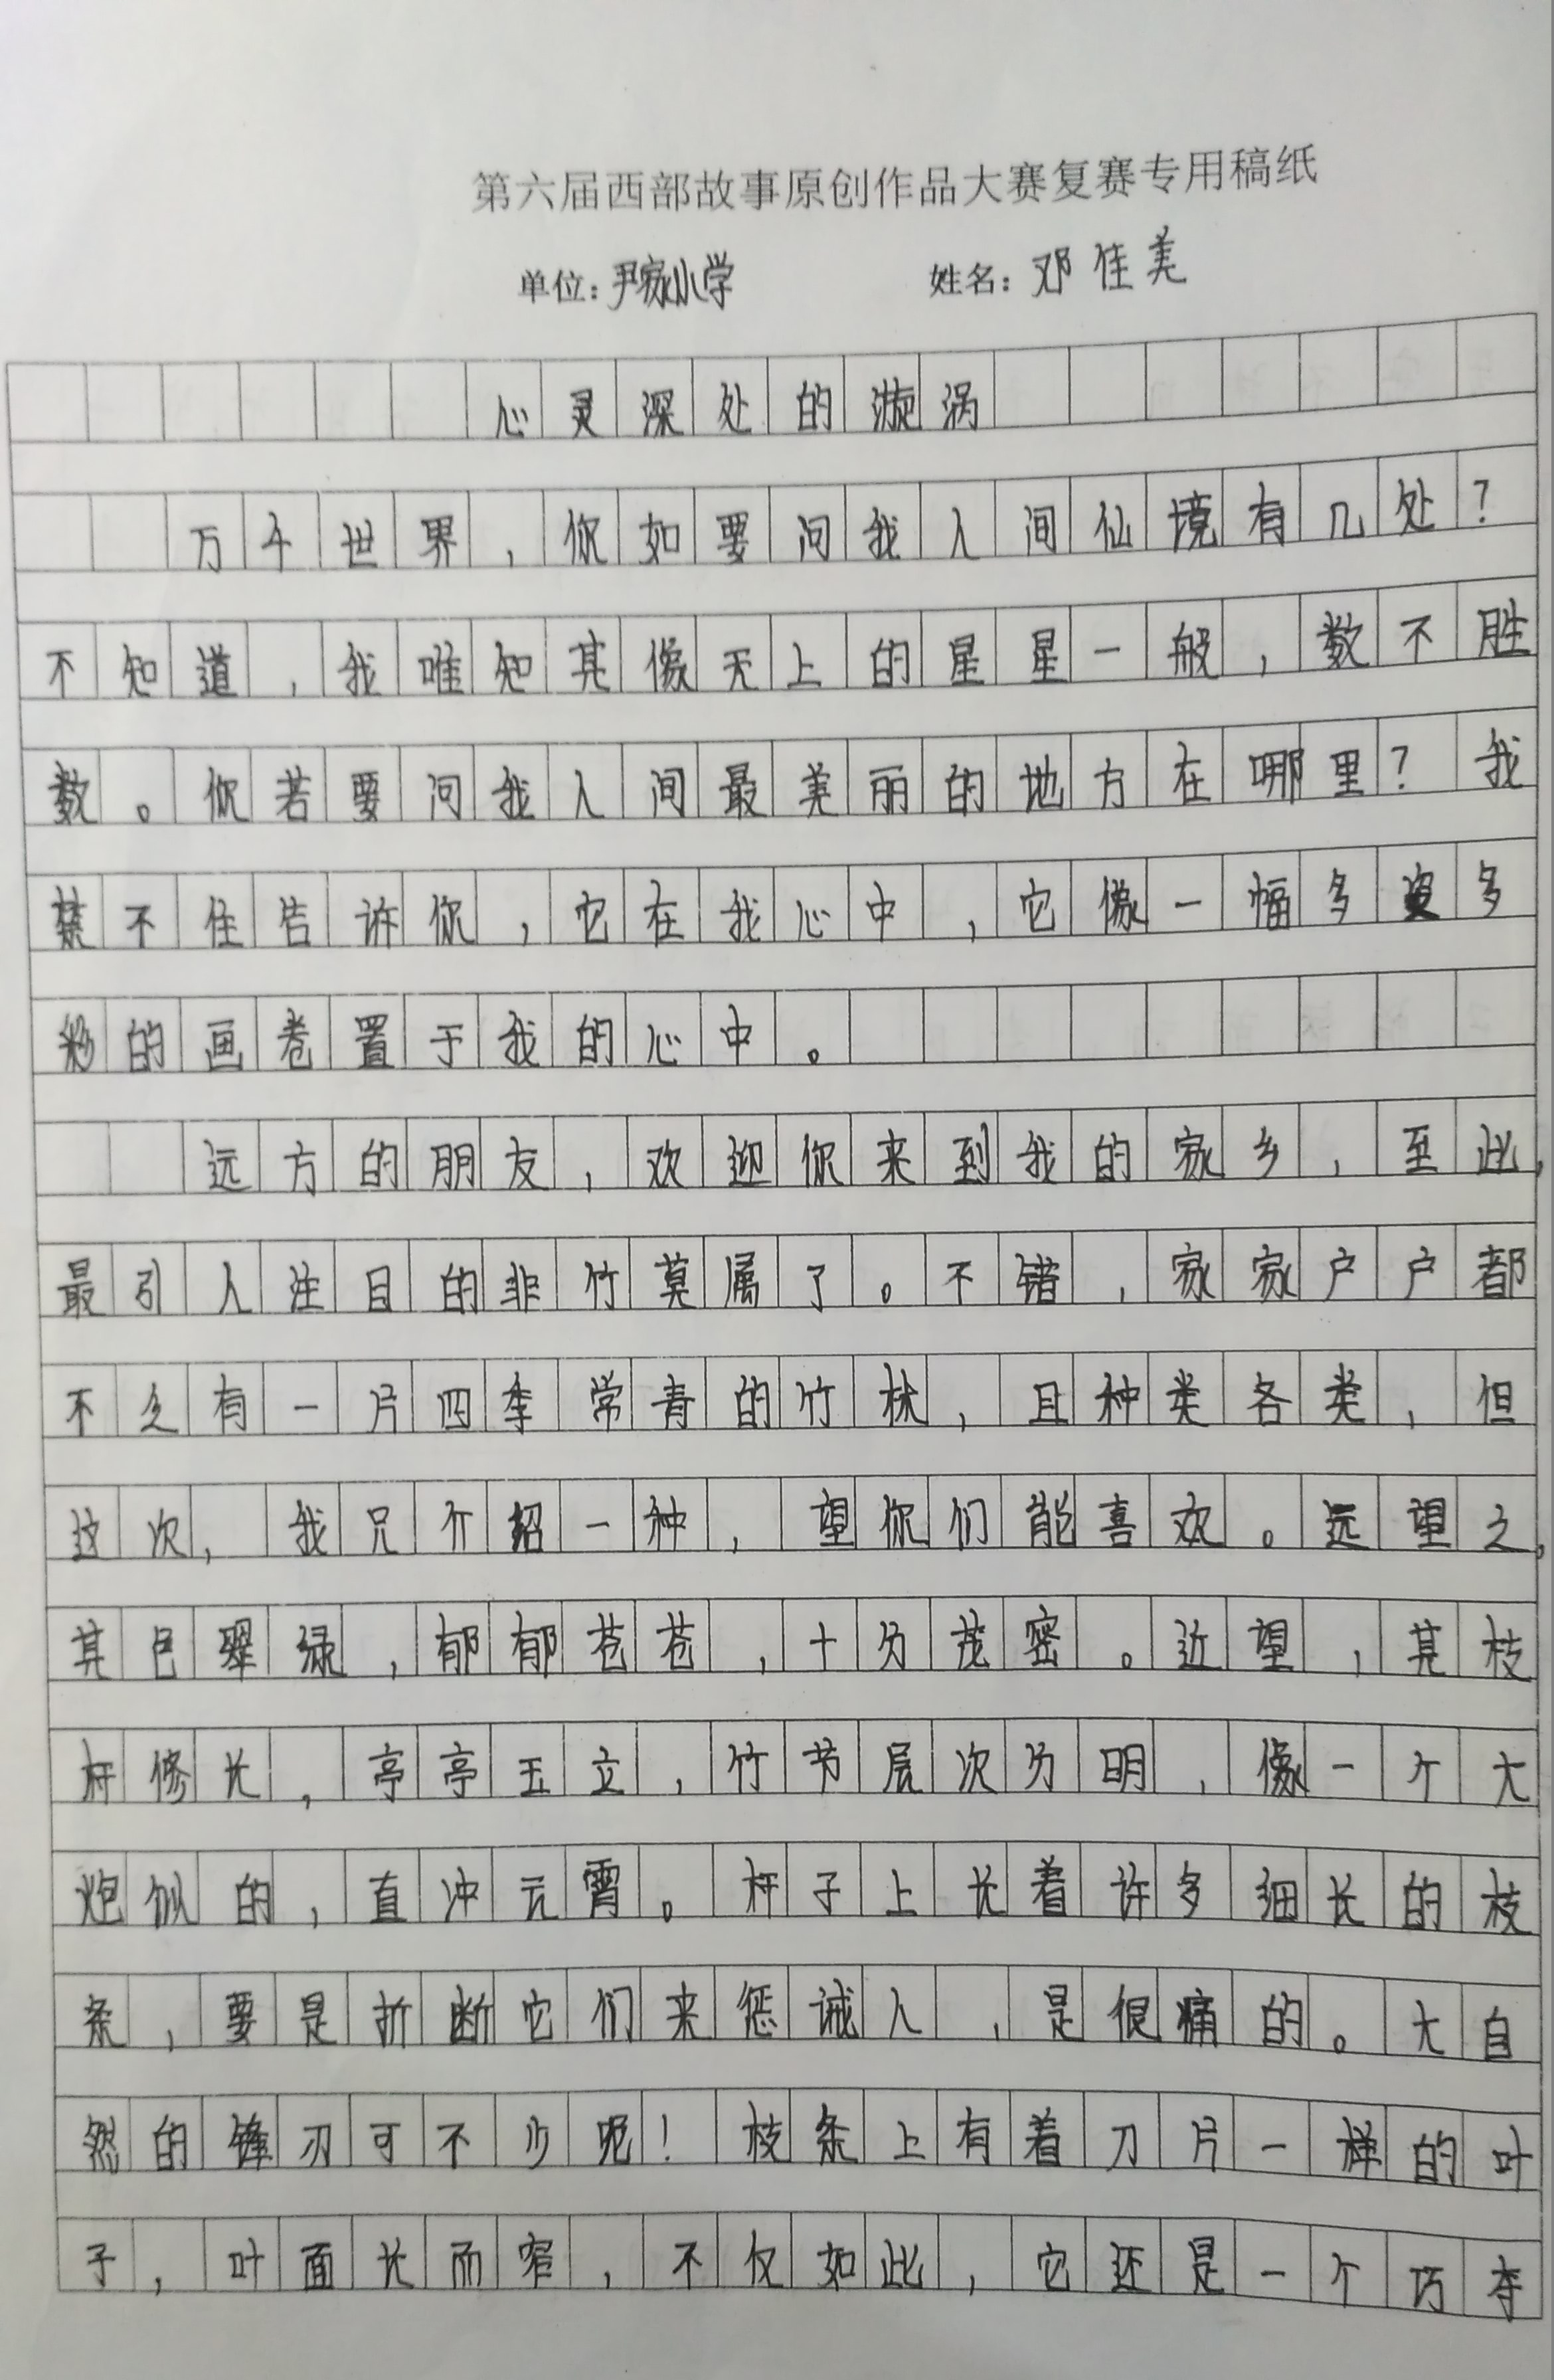 第六届西部故事原创作品大赛复赛专用稿纸
单位：尹家小学 姓名：邓佳美
心灵深处的漩涡
万千世界，你如要问我人间仙境有几处？
不知道，我唯知其像天上的星星一般，数不胜
数。你若要问我人间最美丽的地方在哪里？我
禁不住告许你，它在我心中，它像一幅多姿多
彩的画卷置于我的心中。
远方的朋友，欢迎你来到我的家乡，至此，
最引人注目的非竹莫属了。不错，家家户户都
不乏有一片四季常青的竹林，且种类各类，但
这次，我只介绍一种，望你们能喜欢。远望之。
其色翠绿，郁郁苍苍，十分茂密。近望，其枝
杆修长，亭亭玉立，竹节层次分明，像一个大
炮似的，直冲云霄。杆子上长着许多细长的枝
条，要是折断它们来惩诫人，是很痛的。大自
然的锋刃可不少呢！枝条上有着刀片一样的叶
子，叶面长而窄，不仅如此，它还是一个巧夺